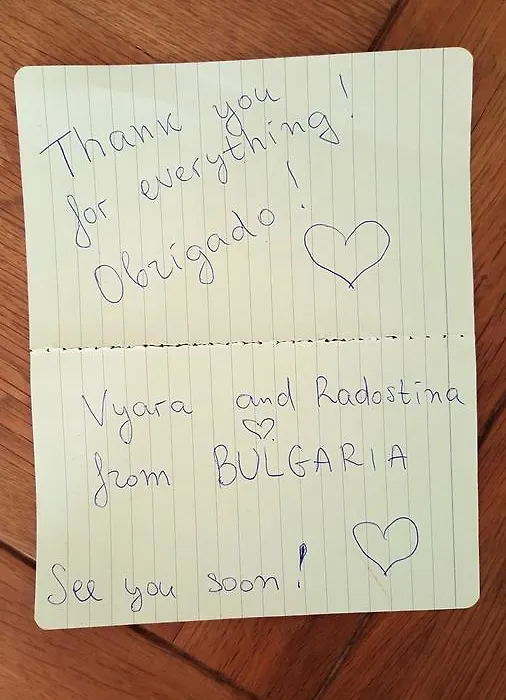 Thank you!
for everything!
Obrigado!
Vyara and Radostina
from BULGARIA
See you soon!